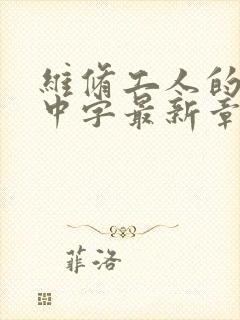 維脩工人的
中字最新章
菲洛